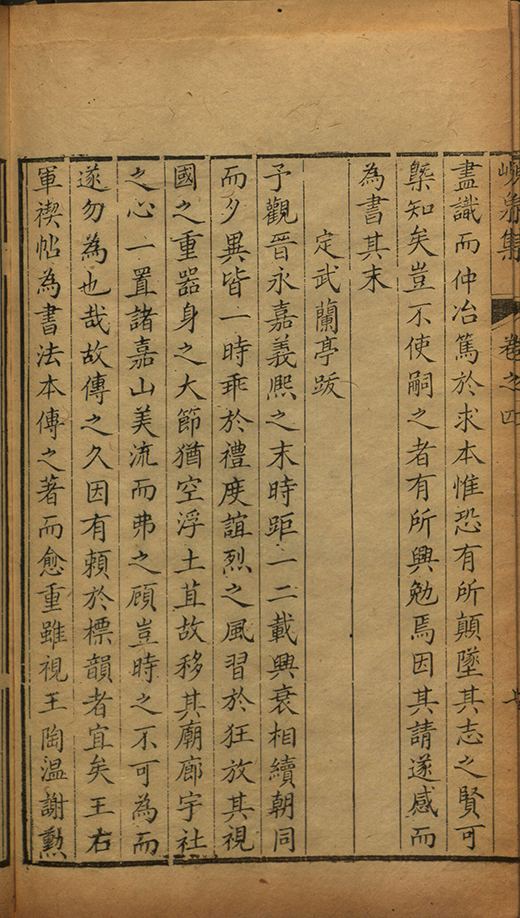 集
卷之四
盡識而仲冶篤於求本惟恐有所顛墜其志之賢可
槩知矣豈不使嗣之者有所興勉焉因其請遂感而
為書其末
定武蘭亭跋
予觀晉永嘉義熙之末時距一二載興衰相續朝同
而夕異皆一時乖於禮度誼烈之風習於狂放其視
國之重器身之大節猶空浮土苴故移其廟廊宇社
之心一置諸嘉山美流而弗之顧豈時之不可為而
遂勿為也哉故傳之久因有賴於標韻者宜矣王右
軍禊帖為書法本傳之著而愈重雖視王陶溫謝勳